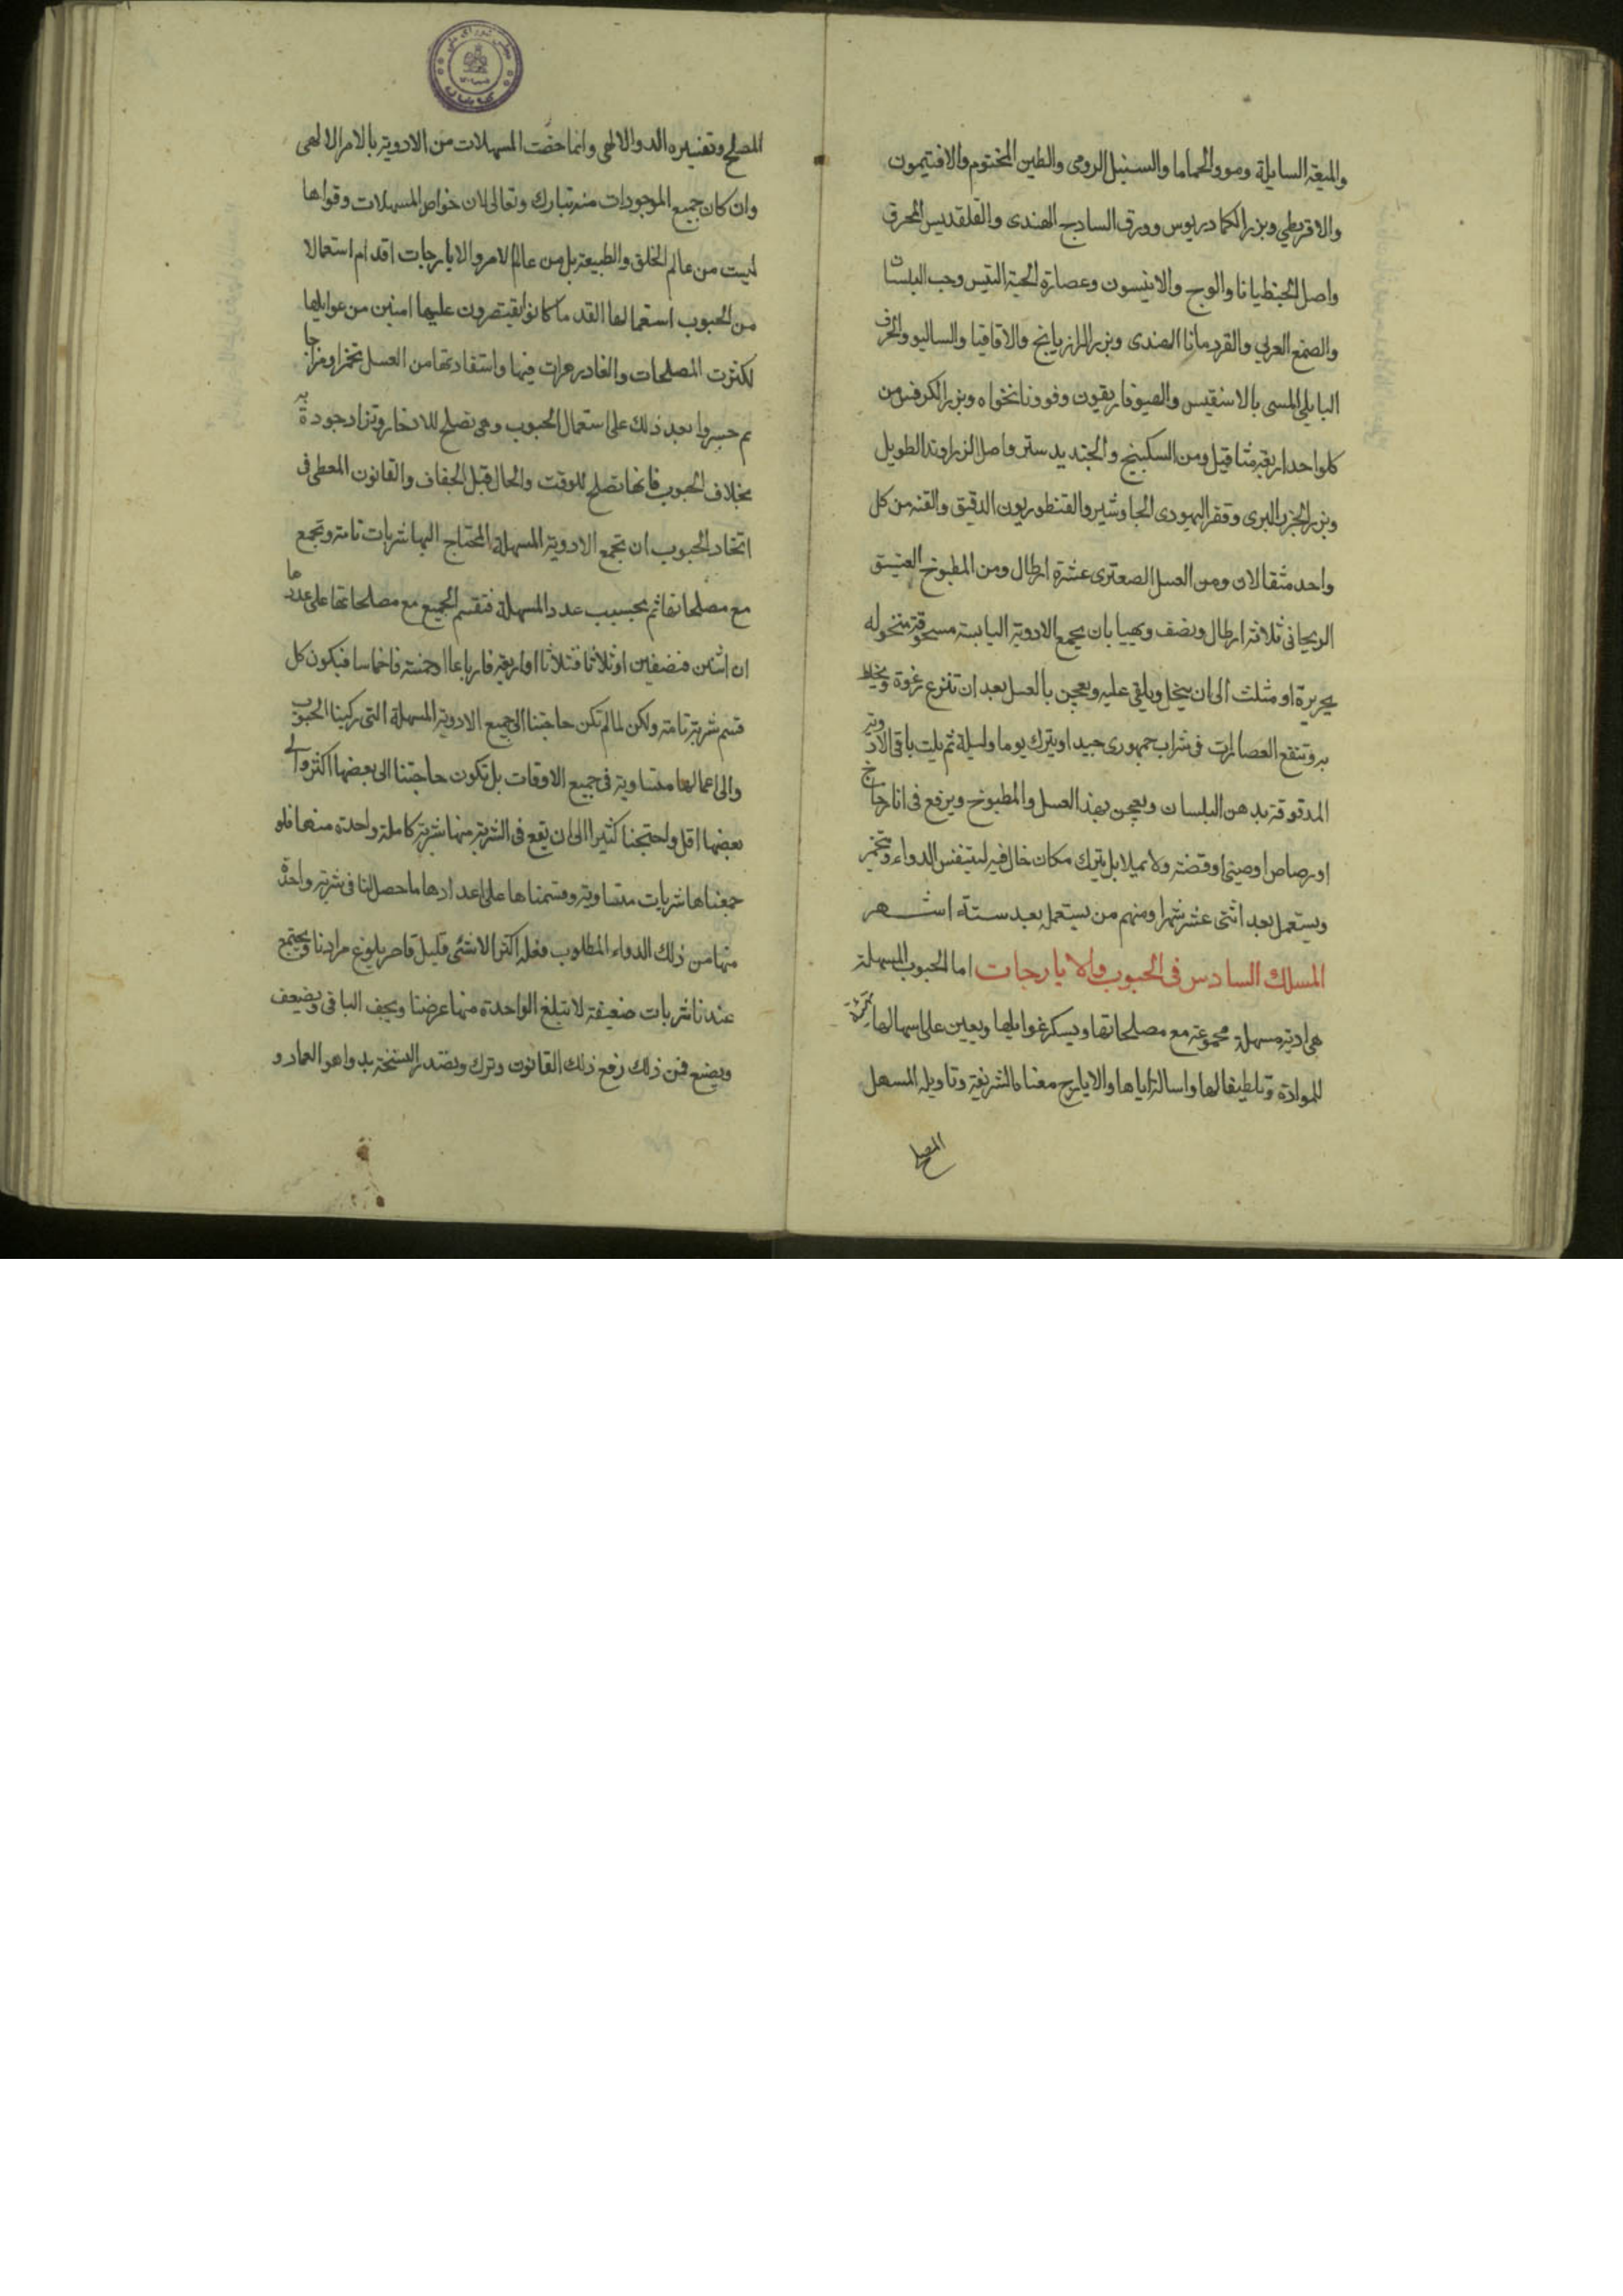 والميعة السايلة ومو والحماما والسنبل الرومى والطين المختوم والافتيمون
والاقريطي وبزر الكمادريوس وورق السادج الهندى والقلقديس المحرق
واصل الجنطيانا والوج والانيسون وعصارة لحية التيس وحب البلسا
والصمغ العربي والقردمانا الهندى وبزر الرازيانج والاقاقيا والساليو والحرف
البابلي المسمى بالاسقيس والهيوفاريقون وفوونانخواه وبزر الكرفس من
كلواحد اربعة مثاقيل ومن السكبينج والجندبيدستر واصل الزراوند الطويل
وبزر الجزر البرى وقفر اليهودى الجاوشير والقنطوريون الدقيق والقنه من كل
واحد مثقالان ومن العسل الصعترى عشرة ارطال ومن المطبوخ العتيق
الريحانى ثلاثة ارطال ونصف ويهيا بان يجمع الادوية اليابسة مسحوقة منخوله
بحريرة او مثلث الى ان ينخل ويلقى عليه ويعجن بالعسل بعد ان تنزع رغوة ويخلط
به وتنقع العصارات فى شراب جمهورى جيد او يترك يوما وليلة ثم يلت باقى الادوية
المدقوقة بدهن البلسان ويعجن بهذا العسل والمطبوخ ويرفع فى انا زجاج
او رصاص او صينى او فضة ولا يملا بل يترك مكان خال فيه ليتنفس الدواء ويتخمر
ويستعمل بعد اثنى عشر شهرا ومنهم من يستعمله بعد ستة اشهر
المسلك السادس فى الحبوب والايارجات اما الحبوب المسهلة
هى ادية مسهلة مجموعة مع مصلحاتها ويسكر غوايلها ويعين على اسهالها
للموادة وتلطيفا لها واسالة اياها والايارج معناه الشريفة وتاويله المسهل
المصلح
المصلح وتفسيره الدوا الالهى وانما خصت المسهلات من الادوية بالامر الالهى
وان كان جميع الموجودات منه تبارك وتعالى لان خواص المسهلات وقواها
ليست من عالم الخلق والطبيعة بل من عالم الامر والايارجات اقدام استعمالا
من الحبوب استعمالها القدما كانوا يقتصرون عليها امنين من غوايلها
لكثرت المصلحات والفادزهرات فيها واستفادتها من العسل تخمرا ومزاجا
ثم جسروا بعد ذلك على استعمال الحبوب وهى تصلح للادخار وتزاد جودة به
بخلاف الحبوب فانها تصلح للوقت والحال قبل الجفاف والقانون المعطى فى
اتخاد الحبوب ان تجمع الادوية المسهلة المحتاج اليها شربات تامة وتجمع
مع مصلحاتها ثم بحسب عدد المسهلة فتقسم الجميع مع مصلحاتها على عددها
ان اثنين فنصفين او ثلاثا فثلاثا او اربعة فارباعا او خمسة فاخماسا فيكون كل
قسم شربة تامة ولكن لما لم تكن حاجتنا الى جميع الادوية المسهلة التى ركبنا الحبوب
والى اعمالها متساوية فى جميع الاوقات بل تكون حاجتنا الى بعضها اكثر والى
بعضها اقل واحتجنا كثيرا الى ان يقع فى الشربة منها شربة كاملة واحدة منها فلو
جمعناها شربات متساوية وقسمناها على اعدادها ما حصل لنا فى شربة واحدة
منها من ذلك الدواء المطلوب فعله اكثر الا شئى قليل قاصر بلوغ مرادنا ويجتمع
عندنا شربات ضعيفة لا تبلغ الواحدة منها غرضنا ويجف الباقى ويضعف
ويضيع فمن ذلك رفع ذلك القانون وترك وتصدر النسخة بدواهو العماد و